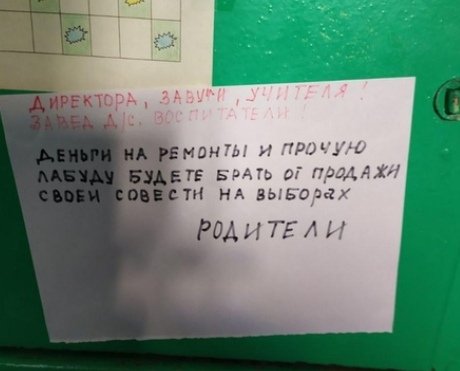 ДИРЕКТОРА, ЗАВУЧИ, УЧИТЕЛЯ!
ЗАВЕД Д/С. ВОСПИТАТЕЛИ!
ДЕНЬГИ НА РЕМОНТЫ И ПРОЧУЮ
ЛАБУДУ БУДЕТЕ БРАТЬ ОТ ПРОДАЖИ
СВОЕЙ СОВЕСТИ НА ВЫБОРАХ
РОДИТЕЛИ